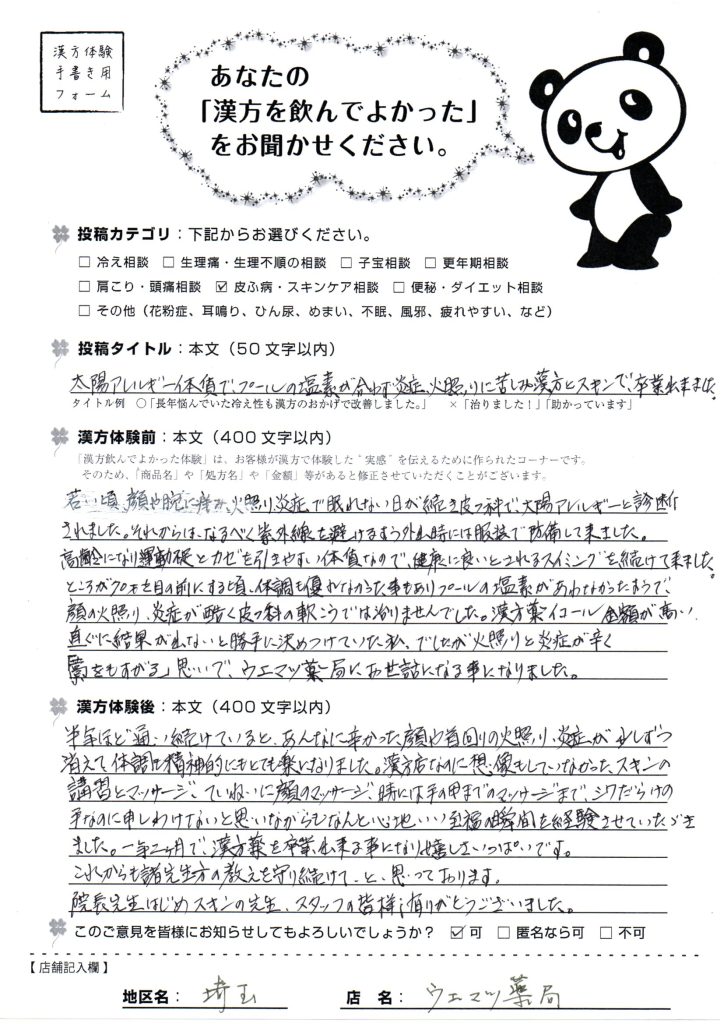 漢方体験
手書き用
フォーム
あなたの
「漢方を飲んでよかった」
をお聞かせください。
投稿カテゴリ：下記からお選びください。
□ 冷え相談 □ 生理痛・生理不順の相談 □ 子宝相談 □ 更年期相談
□ 肩こり・頭痛相談 ☑ 皮ふ病・スキンケア相談 □ 便秘・ダイエット相談
□ その他（花粉症、耳鳴り、ひん尿、めまい、不眠、風邪、疲れやすい、など）
投稿タイトル：本文（50文字以内）
太陽アレルギー体質でプールの塩素が合わず炎症、火照りに苦しみ漢方とスキンで、卒業出来ました。
タイトル例 ○「長年悩んでいた冷え性も漢方のおかげで改善しました。」 ×「治りました！」「助かっています」
漢方体験前：本文（400文字以内）
「漢方飲んでよかった体験」は、お客様が漢方で体験した“実感”を伝えるために作られたコーナーです。
そのため、「商品名」や「処方名」や「金額」等があると修正させていただくことがございます。
若い頃、顔や腕に痒み、火照り、炎症で眠れない日が続き皮フ科で、太陽アレルギーと診断
されました。それからは、なるべく紫外線を避けるよう外出時には服装で防備して来ました。
高齢になり運動硬とカゼを引きやすい体質なので、健康に良いとされるスイミングを続けて来ました。
ところが を目の前にする頃、体調も優れなかった事もありプールの塩素があわなかったようで、
顔の火照り、炎症が酷く皮フ科の軟こうでは治りませんでした。漢方薬イコール金額が高い
直ぐに結果が出ないと勝手に決めつけていた私、でしたが火照りと炎症が辛く
「藁をもすがる」思いで、ウエマツ薬局にお世話になる事になりました。
漢方体験後：本文（400文字以内）
半年ほど通い続けていると、あんなに辛かった顔や首回りの火照り、炎症が少しずつ
消えて体調も精神的にもとても楽になりました。漢方店なのに想像もしていなかったスキンの
講習とマッサージ、ていねいに顔のマッサージ、時には手の甲までのマッサージまで、シワだらけの
手なのに申しわけないと思いながらもなんと心地いい至福の瞬間を経験させていただき
ました。一年二ヶ月で、漢方薬を卒業出来る事になり嬉しさいっぱいです。
これからも諸先生方の教えを守り続けて、と、思っております。
院長先生はじめスキンの先生、スタッフの皆様有りがとうございました。
このご意見を皆様にお知らせしてもよろしいでしょうか？ ☑ 可 □ 匿名なら可 □ 不可
【店舗記入欄】
地区名： 埼玉 店 名： ウエマツ薬局